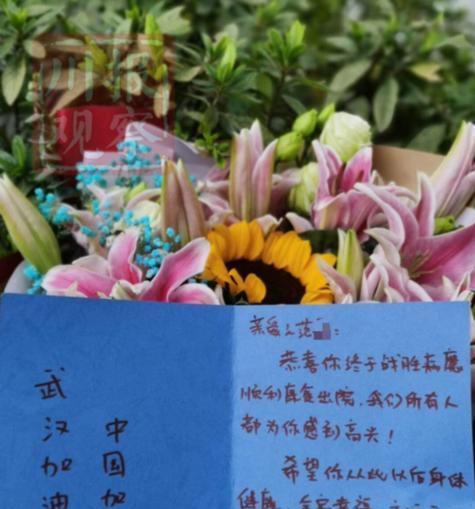 川报
观察
武汉加油
中国加
亲爱的范:
恭喜你终于战胜病魔
顺利康复出院,我们所有人
都为你感到高兴!
希望你从此以后身体
健康,全家幸福